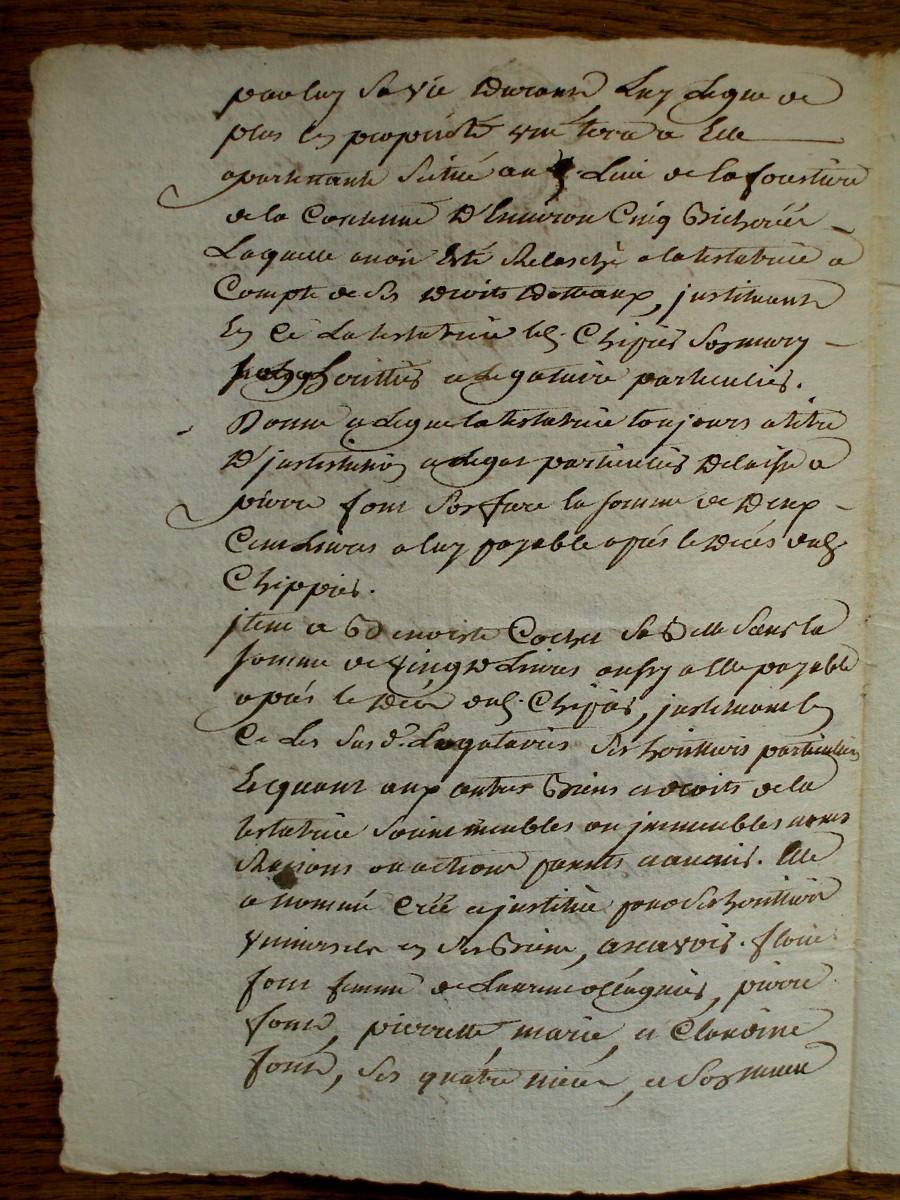 pour luy sa vie Durant Luy Legue de
plus En propriété une terre a Elle
apartenante Scituée au Lieu de la fouetiere
de la Contenue D'Environ Cinq Bicherées
Laquelle avoit Esté Relasché a la testatrice a
Compte de ses Droits Dotteaux, justituante
En Ce La testatrice led. Chipiés Son mary
heritties a Legataire particulies.
Donne a Legue la testatrice toujours a titre
D'justitution a Legat particulies Delaisse a
pierre font Son frere la somme de Deux
Cent Livres a luy payable aprés le Décés dud.
Chippiés.
jtem a Benoiste Cochet Sa Belle Sœur la
somme de Vingt Livres aussy a Elle payable
aprés le Décé dud. Chipiés, justituant En
Ce Les Susd. Legataires Ses heritties particulies
Et quant aux autres Biens et droits de la
testatrice Soient meubles ou jmmeubles noms
Raisons ou actions presents a avenir. Elle
a nommé Créé et justitué pour Ses heritties
Universels en Ses Biens, a scavoir.
font femme de Laurent, pierre
font, pierrette, marie, et Claudine
font, Ses quatre niéces, et Son